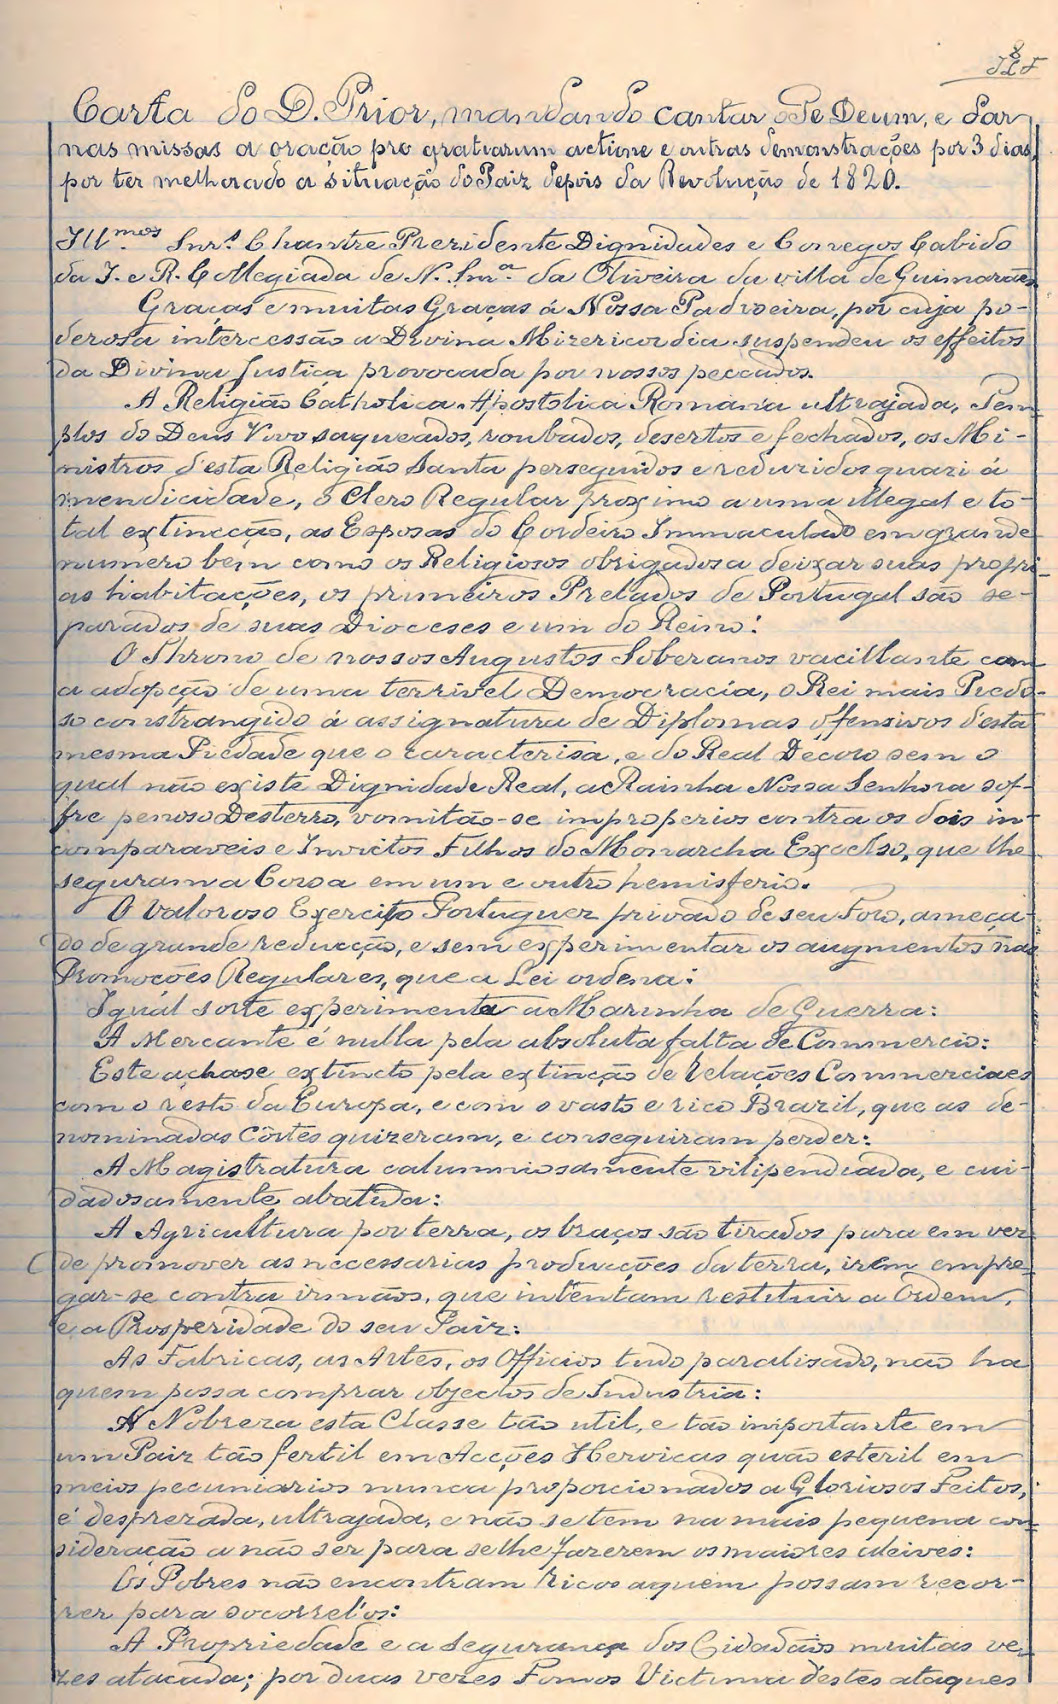 8
Carta do D. Prior, mandando cantar o Te Deum, e dar
nas missas a oração pro gratiarum actione e outras demonstrações por 3 dias,
por ter melhorado a situação do Paiz depois da Revolução de 1820.
Illmos Snrs Chantre Prezidente Dignidades e Conegos Cabido
da I. e R. Collegiada de N. Snra da Oliveira da villa de Guimarães
Graças e muitas Graças á Nossa Padroeira, por cuja po-
derosa intercessão a Divina Mizericordia suspendeu os effeitos
da Divina Justiça provocada por nossos peccados.
A Religião Catholica Apostolica Romana ultrajada, Tem
plos do Deus Vivo saqueados, roubados, desertos e fechados, os Mi-
nistros d'esta Religião Santa perseguidos e reduzidos quazi á
mendicidade, o Clero Regular proximo a uma illegal e to-
tal extincção, as Esposas do Cordeiro Immaculado em grande
numero bem como os Religiosos obrigados a deixar suas propri-
as habitações, os primeiros Prelados de Portugal são se-
parados de suas Dioceses e um do Reino:
O Throno de nossos Augustos Soberanos vacillante com
a adopção de uma terrivel Democracia, o Rei mais Piedo-
so constrangido á assignatura de Diplomas offensivos d'esta
mesma Piedade que o caracterisa, e do Real Decoro sem o
qual não existe Dignidade Real, a Rainha Nossa Senhora sof-
fre penoso Desterro, vomitão-se improperios contra os dois in-
comparaveis e Invictos Filhos do Monarcha Excelso, que lhe
seguram a Coroa em um e outro hemisferio.
O Valoroso Exercito Portuguez privado de seu Foro, ameaça-
do de grande reducção, e sem experimentar os augmentos nas
Promoções Regulares, que a Lei ordena:
Igual sorte experimenta a Marinha de Guerra:
A Mercante é nulla pela absoluta falta de Commercio:
Este achase extincto pela extincção de relações Commerciaes
com o resto da Europa, e com o vasto e rico Brazil, que as de-
nominadas Côrtes quizeram, e conseguiram perder:
A Magistratura calumniosamente vilipendiada, e cui-
dadosamente abatida:
A Agricultura por terra, os braços são tirados para em vez
de promover as necessarias producções da terra, irem empre-
gar-se contra irmãos, que intentam restituir a Ordem,
e a Prosperidade do seu Paiz:
As Fabricas, as Artes, os Officios tudo paralisado, não ha
quem possa comprar objectos de Industria:
A Nobreza esta Classe tão util, e tão importante em
um Paiz tão fertil em Acções Heroicas quão esteril em
meios pecuniarios nunca proporcionados a Gloriosos Feitos,
é desprezada, ultrajada, e não se tem na mais pequena con-
sideração a não ser para se lhe fazerem os maiores aleives:
Os Pobres não encontram ricos a quem possam recor-
rer para soccorrel'os:
A Propriedade e a segurança dos Cidadãos muitas ve-
zes atacada; por duas vezes Fomos Victima destes ataques